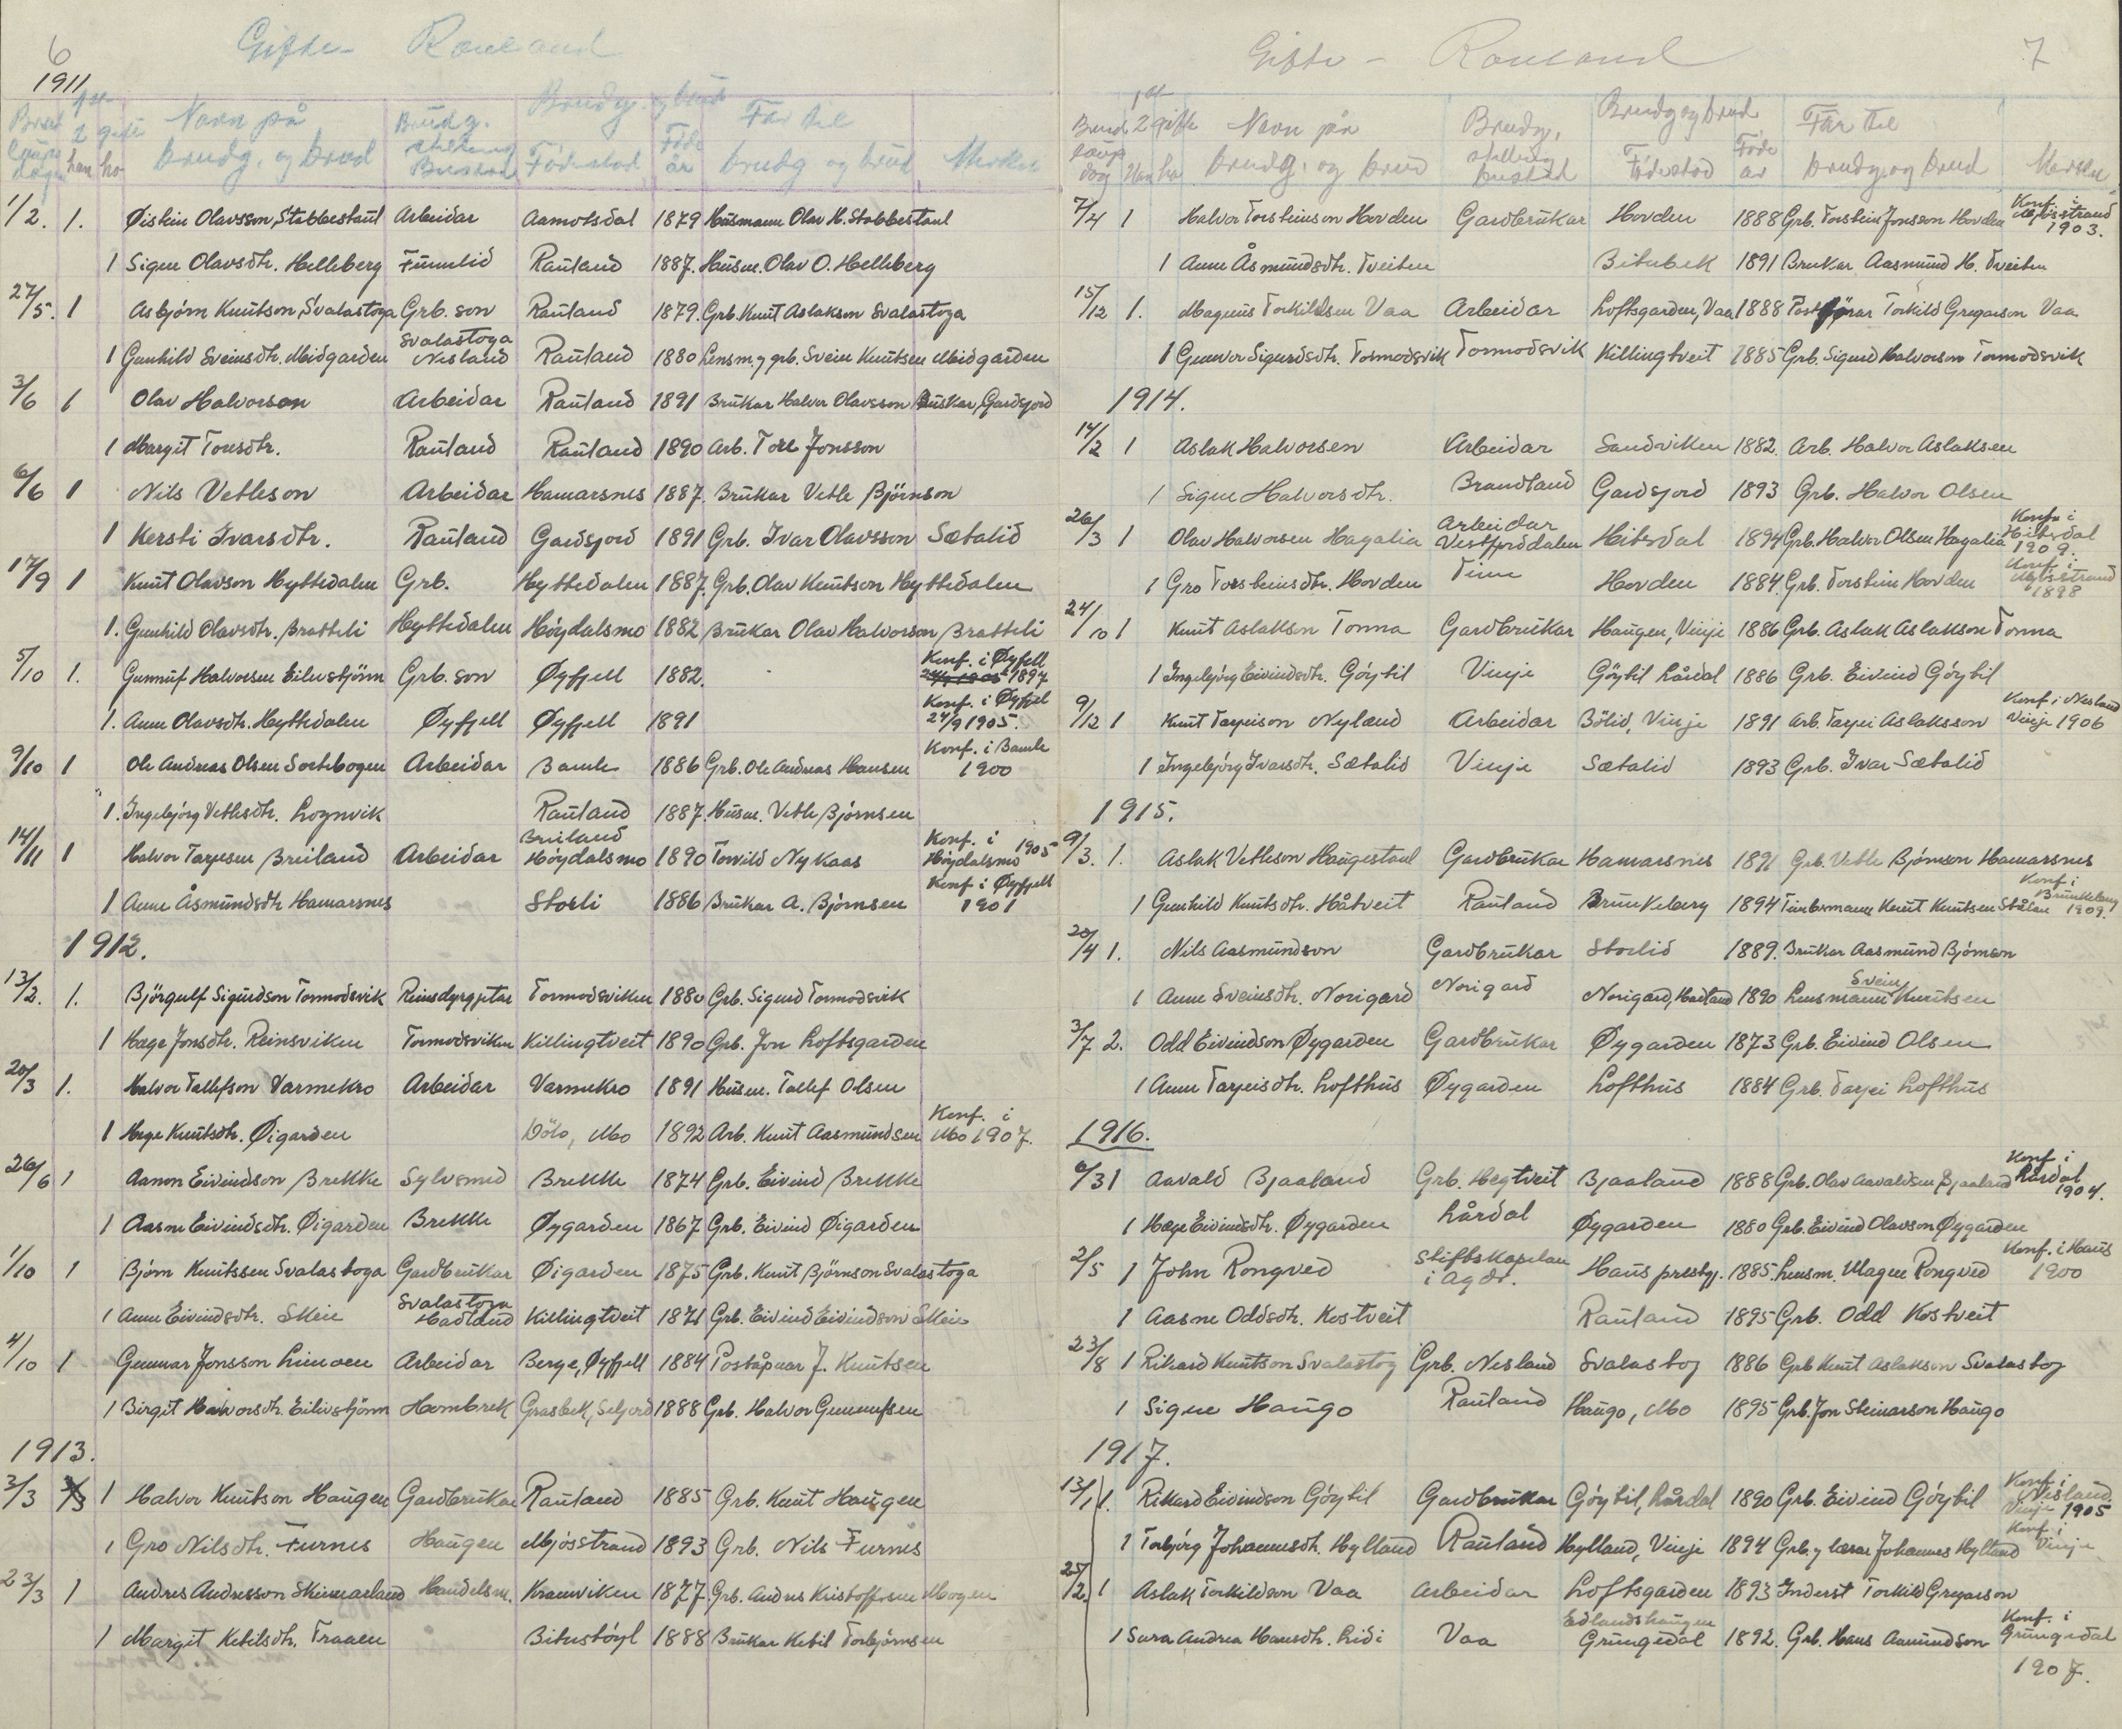 6
Gifte – Rauland
1911
Brudlaups dag 1st 2 gifte han ho Navn på brudg. og brud Brudg. stilling Bustad Brudg. og brud Födestad Föde år Far til brudg og brud Merkn
1/2. 1. Øistein Olavsson, Stabbestaul Arbeidar Aamotsdal 1879 Husmann Olav H. Stabbestaul
1 Signe Olavsdtr. Helleberg Funnlid Rauland 1887. Husm. Olav O. Helleberg
27/5. 1 Asbjörn Knutson, Svalastoga Grb. son Rauland 1879. Grb. Knut Aslakson Svalastoga
1 Gunhild Sveinsdtr. Midgarden Svalastoga Nesland Rauland 1880 Lensm. og grb. Svein Knutsen Midgarden
3/6 1 Olav Halvorson Arbeidar Rauland 1891 Brukar Halvor Olavsson Buskar, Gardsjord
1 Margit Toresdtr. Rauland Rauland 1890 Arb. Tore Jonsson
6/6 1 Nils Vetleson Arbeidar Hamarsnes 1887. Brukar Vetle Björnson
1 Kersti Ivarsdtr. Rauland Gardsjord 1891 Grb. Ivar Olavsson Sætalid
17/9 1 Knut Olavson Hyttedalen Grb. Hyttedalen 1887. Grb. Olav Knutson Hyttedalen
1. Gunhild Olavsdtr. Bratteli Hyttedalen Höydalsmo 1882 Brukar Olav Halvorsson Bratteli
5/10 1. Gunnuf Halvorsen Eilivstjönn Grb. son Øyfjell 1882. Konf. i Øyfjell 1897
1. Anne Olavsdtr. Hyttedalen Øyfjell Øyfjell 1891 Konf. i Øyfjel 24/9 1905.
9/10 1 Ole Andreas Olsen Sortebogen Arbeidar Bamle 1886 Grb. Ole Andreas Hansen Konf. i Bamle 1900
1. Ingebjörg Vetlesdtr. Lognvik Rauland 1887. Husm. Vetle Björnsen
14/11 1 Halvor Tarjesen Breiland Arbeidar Breiland Höydalsmo 1890 Torvild Nykaas Konf. i Höydalsmo 1905
1 Anne Åsmundsdtr Hamarsnes Stoeli 1886 Brukar A. Björnsen Konf i Øyfjell 1901
1912.
13/2. 1. Björgulf Sigurdson Tormodsvik Reinsdyrgjetar Tormodsviken 1880 Grb. Sigurd Tormodsvik
1 Hæge Jonsdtr. Reinsviken Tormodsviken Killingtveit 1890 Grb. Jon Loftsgarden
20/3 1. Halvor Tallefson Varmekro Arbeidar Varmekro 1891 Husm. Tallef Olsen
1 Hege Knutsdtr. Øigarden Dölo, Mo 1892 Arb. Knut Aasmundsen Konf. i Mo 1907.
26/6 1 Aanon Eivindson Brekke Sylvsmed Brekke 1874 Grb. Eivind Brekke
1 Aasne Eivindsdtr. Øigarden Brekke Øygarden 1867 Grb. Eivind Øigarden
1/10 1 Björn Knutssen Svalastoga Gardbrukar Øigarden 1875 Grb. Knut Björnson Svalastoga
1 Anne Eivindsdtr. Skeie Svalastoga Hadland Killingtveit 1871 Grb. Eivind Eivindson Skeie
4/10 1 Gunnar Jonsson Limoen Arbeidar Berge, Øyfjell 1884 Poståpnar J. Knutsen
1 Birgit Halvorsdtr. Eilivstjönn Hombrek Grasbek, Seljord 1888 Grb. Halvor Gunnufsen
1913.
3/3 1 Halvor Knutson Haugen Gardbrukar Rauland 1885 Grb. Knut Haugen
1 Gro Nilsdtr. Furnes Haugen Mjösstrand 1893 Grb. Nils Furnes
23/3 1 Andres Andresson Skinnarland Handelsm. Kromviken 1877. Grb. Andres Kristoffersen Mogen
1 Margit Ketilsdtr. Traaen Bitustöyl 1888 Brukar Ketil Torbjörnsen
Gifte – Rauland 7
Brudlaup dag 1st 2 gifte Han ho Navn på brudg. og brud Brudg. stilling bustad Brudg og brud Fødestad Føde år Far til brudg. og brud Merkn
7/4 1 Halvor Torsteinson Hovden Gardbrukar Hovden 1888 Grb. Torstein Jonsson Hovden Konf. i Mjösstrand 1903.
1 Anne Åsmundsdtr. Tveiten Bitubek 1891 Brukar Aasmund H. Tveiten
15/12 1. Magnus Torkildsen Vaa Arbeidar Loftsgarden, Vaa 1888 Postförar Torkild Gregarson Vaa
1 Gunvor Sigurdsdtr. Tormodsvik Tormodsvik Killingtveit 1885 Grb. Sigurd Halvorson Tormodsvik
1914.
14/2 1 Aslak Halvorsen Arbeidar Sandviken 1882. Arb. Halvor Aslaksen
1 Signe Halvorsdtr. Brandland Gardsjord 1893 Grb. Halvor Olsen
26/3 1 Olav Halvorsen Hagalia Arbeidar Vestfjorddalen Hitterdal 1894 Grb. Halvor Olsen Hagalia Konf. i Hitterdal 1909.
1 Gro Torsteinsdtr. Hovden Tinn Hovden 1884. Grb. Torstein Hovden Konf. i Mjösstrand 1898
24/10 1 Knut Aslakson Tonna Gardbrukar Haugen, Vinje 1886 Grb. Aslak Aslakson Tonna
1 Ingebjörg Eivindsdtr. Göytil Vinje Göytil Lårdal 1886 Grb. Eivind Göytil
9/12 1 Knut Tarjeison Nyland Arbeidar Bölid, Vinje 1891 Arb. Tarjei Aslaksson Konf i Nesland Vinje 1906
1 Ingebjörg Ivarsdtr. Sætalid Vinje Sætalid 1893 Grb. Ivar Sætalid
1915.
9/3. 1. Aslak Vetleson Haugestaul Gardbrukar Hamarsnes 1891 Grb. Vetle Björnson Hamarsnes
1 Gunhild Knutsdtr. Håtveit Rauland Brunkeberg 1894 Timbermann Knut Knutsen Stålen Konf i Brunkeberg 1909.
20/4 1. Nils Aasmundson Gardbrukar Stoslid 1889. Brukar Aasmund Björnson
1 Anne Sveinsdtr. Norigard Norigard Norigard, Hadland 1890 Lensmann Svein Knutsen
3/7 2. Odd Eivindson Øygarden Gardbrukar Øygarden 1873 Grb. Eivind Olsen
1 Anne Tarjeisdtr. Lofthus Øygarden Lofthus 1884 Grb. Tarjei Lofthus
1916.
6/3 1 Aavald Bjaaland Grb. Hegtveit Bjaaland 1888 Grb. Olav Aavaldsen Bjaaland Konf i Lårdal 1904.
1 Hæge Eivindsdtr. Øygarden Lårdal Øygarden 1880 Grb. Eivind Olavson Øygarden
2/5 1 John Rongved Stiftskapelan i Agdr. Haus prestgj. 1885. Lensm. Magne Rongved Konf. i Haus 1900
1 Aasne Oddsdtr. Kostveit Rauland 1895 Grb. Odd Kostveit
23/8 1 Rikard Knutson Svalastog Grb. Nesland Svalastog 1886 Grb Knut Aslakson Svalastog
1 Signe Haugo Rauland Haugo, Mo 1895 Grb. Jon Steinarson Haugo
1917.
13/1 1. Rikard Eivindson Göytil Gardbrukar Göytil, Lårdal 1890 Grb. Eivind Göytil Konf i Nesland Vinje 1905
1 Torbjörg Johannesdtr. Hylland Rauland Hylland, Vinje 1894 Grb. og lærar Johannes Hylland Konf. i Vinje
25/2. 1 Aslak Torkildson Vaa Arbeidar Loftsgarden 1893 Inderst Torkild Gregarson
1 Sara Andrea Hansdtr. Lidi Vaa Edlandshaugen Grungedal 1892. Grb. Hans Aamundson Konf. i Grungedal 1907.